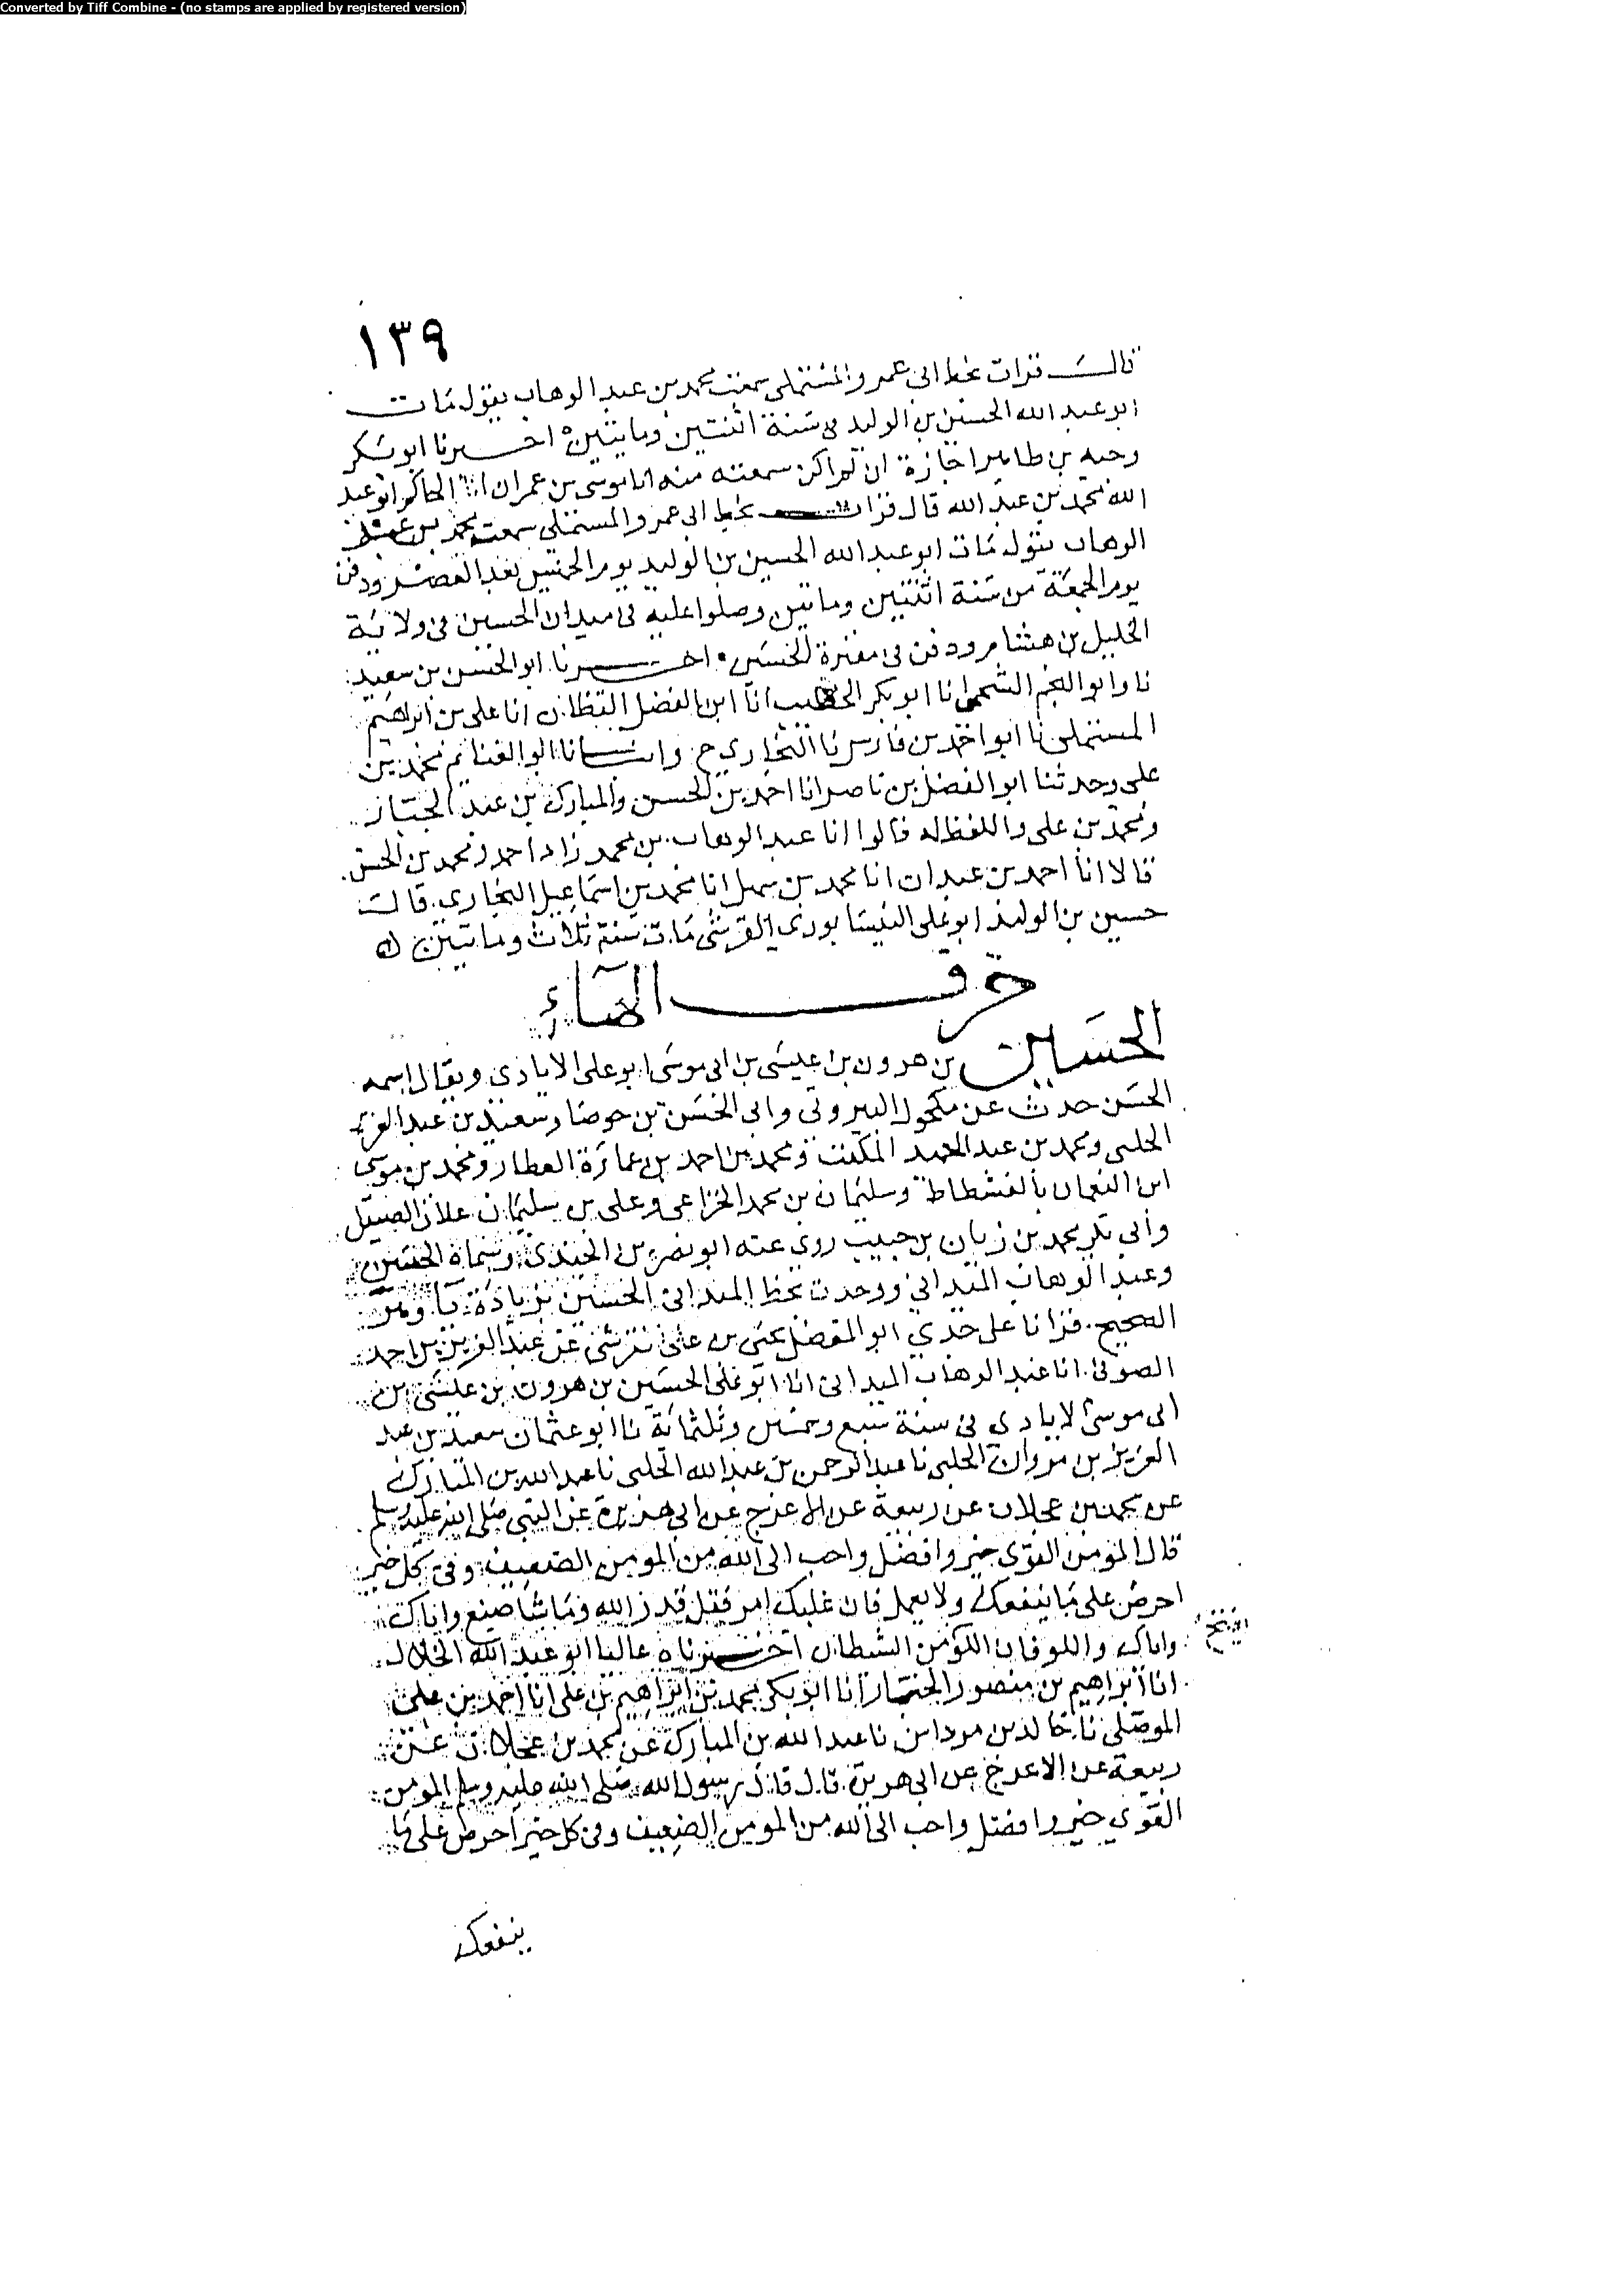 Converted by Tiff Combine - (no stamps are applied by registered version)
١٣٩
قالــ قرات بخط ابى عمرو المستملى سمعت محمد بن عبد الوهاب يقول مات
ابو عبد الله الحسين بن الوليد في سنة اثنتين وماىتين اخــبرنا ابو بكر
وجيه بن طاهر اجازة ان لم اكن سمعته منه انا موسى بن عمران انا الحاكم ابو عبد
الله محمد بن عبد الله قال قرات بخط ابى عمرو المستملى سمعت محمد بن عبد
الوهاب يقول مات ابو عبد الله الحسين بن الوليد يوم الخميس بعد العصر ودفن
يوم الجمعة من سنة اثنتين وماتين وصلوا عليه في ميدان الحسين في ولاية
الخليل بن هشام ودفن في مقبرة الحسين اخــبرنا ابو الحسن بن سعيد
نا وابو النجم الشيحى انا ابو بكر الخطيب انا ابن الفضل القطان انا على بن ابراهيم
المستملى نا ابو احمد بن فارس نا البخاري ح وانبـانا ابو الغنايم محمد بن
على وحدثنا ابو الفضل بن ناصر انا احمد بن الحسن والمبارك بن عبد الجبار
ومحمد بن على واللفظ له قالوا انا عبد الوهاب بن محمد زاد احمد ومحمد بن الحسن
قالا انا احمد بن عبدان انا محمد بن سهل انا محمد بن اسماعيل البخاري قالـ
حسين بن الوليد ابو على النيسابوري القرشى مات سنة ثلاث وماتين
حرف الهاء
الحسين بن هرون بن عيسى بن ابى موسى ابو على الايادي ويقال اسمه
الحسن حدث عن مكحول البيروتى وابى الحسن بن جوصا وسعيد بن عبد العزيز
الحلبى ومحمد بن عبد الحميد المكتب ومحمد بن احمد بن عمارة العطار ومحمد بن موسى
ابن النعمان بالفسطاط وسليمان بن محمد الخزاعى وعلى بن سليمان علان الصيقل
وابى بكر محمد بن زبان بن حبيب روى عنه ابو نصر بن الجندي وسماه الحسن
وعبد الوهاب الميدانى ووجدت بخط الميدانى الحسين بزيادة يا وهو
الصحيح قرانا على جدي ابو المفضل يحيى بن على القرشى عن عبد العزيز بن احمد
الصوفى انا عبد الوهاب الميدانى انا ابو على الحسين بن هرون بن عيسى ابن
ابى موسى الايادي في سنة سبع وخمسين وثلثمائة نا ابو عثمان سعيد بن عبد
العزيز بن مروان الحلبى نا عبد الرحمن بن عبد الله الحلبى نا عبد الله بن المبارك
عن محمد بن عجلان عن ربيعة عن الاعرج عن ابى هريرة عن النبى صلى الله عليه وسلم
قال المؤمن القوي خير وافضل واحب الى الله من المومن الضعيف وفى كل خير
احرص على ما ينفعك ولا تعجز فان غلبك امر فقل قدر الله وما شا صنع واياك
واياك واللو فان اللو من الشيطان اخــبرناه عاليا ابو عبد الله الخلال
انا ابراهيم بن منصور الخباز انا ابو بكر محمد بن ابراهيم بن على انا احمد بن على
الموصلى نا خالد بن مرداس نا عبد الله بن المبارك عن محمد بن عجلان عن
ربيعة عن الاعرج عن ابى هريرة قال قال رسول الله صلى الله عليه وسلم المومن
القوي خير وافضل واحب الى الله من المومن الضعيف وفى كل خير احرص على ما
ينفعك